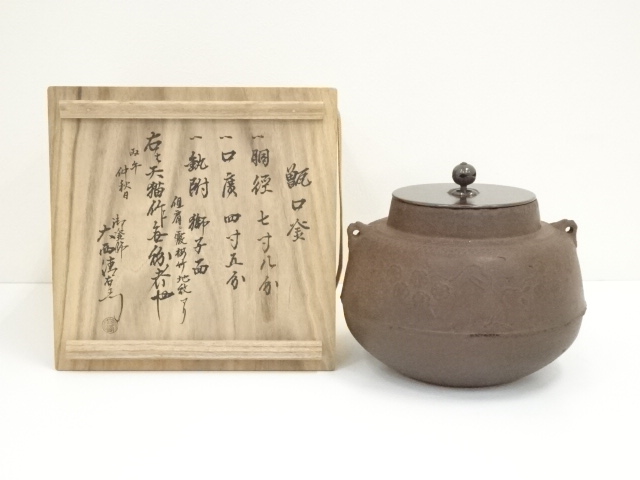 甑口釜
一胴径 七寸八分
一口広 四寸五分
一鐶附 獅子面
但肩ニ霰松竹地紋アリ
右ハ天猫作無紛者也
丙午
仲秋日
御釜師
大西清右衛門